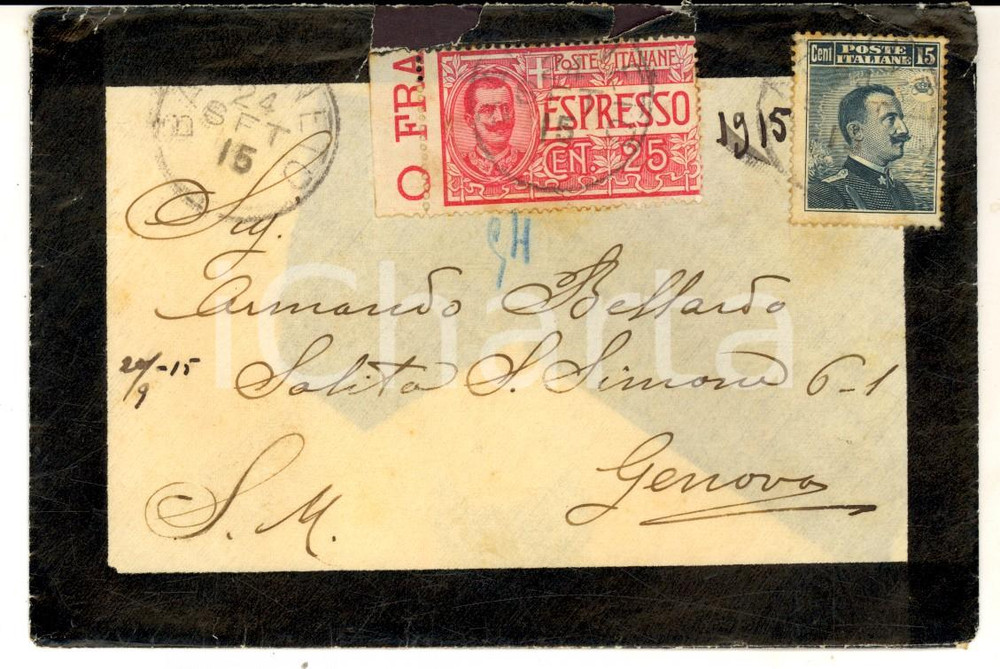 POSTE ITALIANE
ESPRESSO
CENT. 25
O FRA
Cent POSTE ITALIANE 15
24
SET
15
1915
Sig.
Armando Bellardo
Salita S. Simone 6-1
24/9-15
Genova
S. M.
iCharta